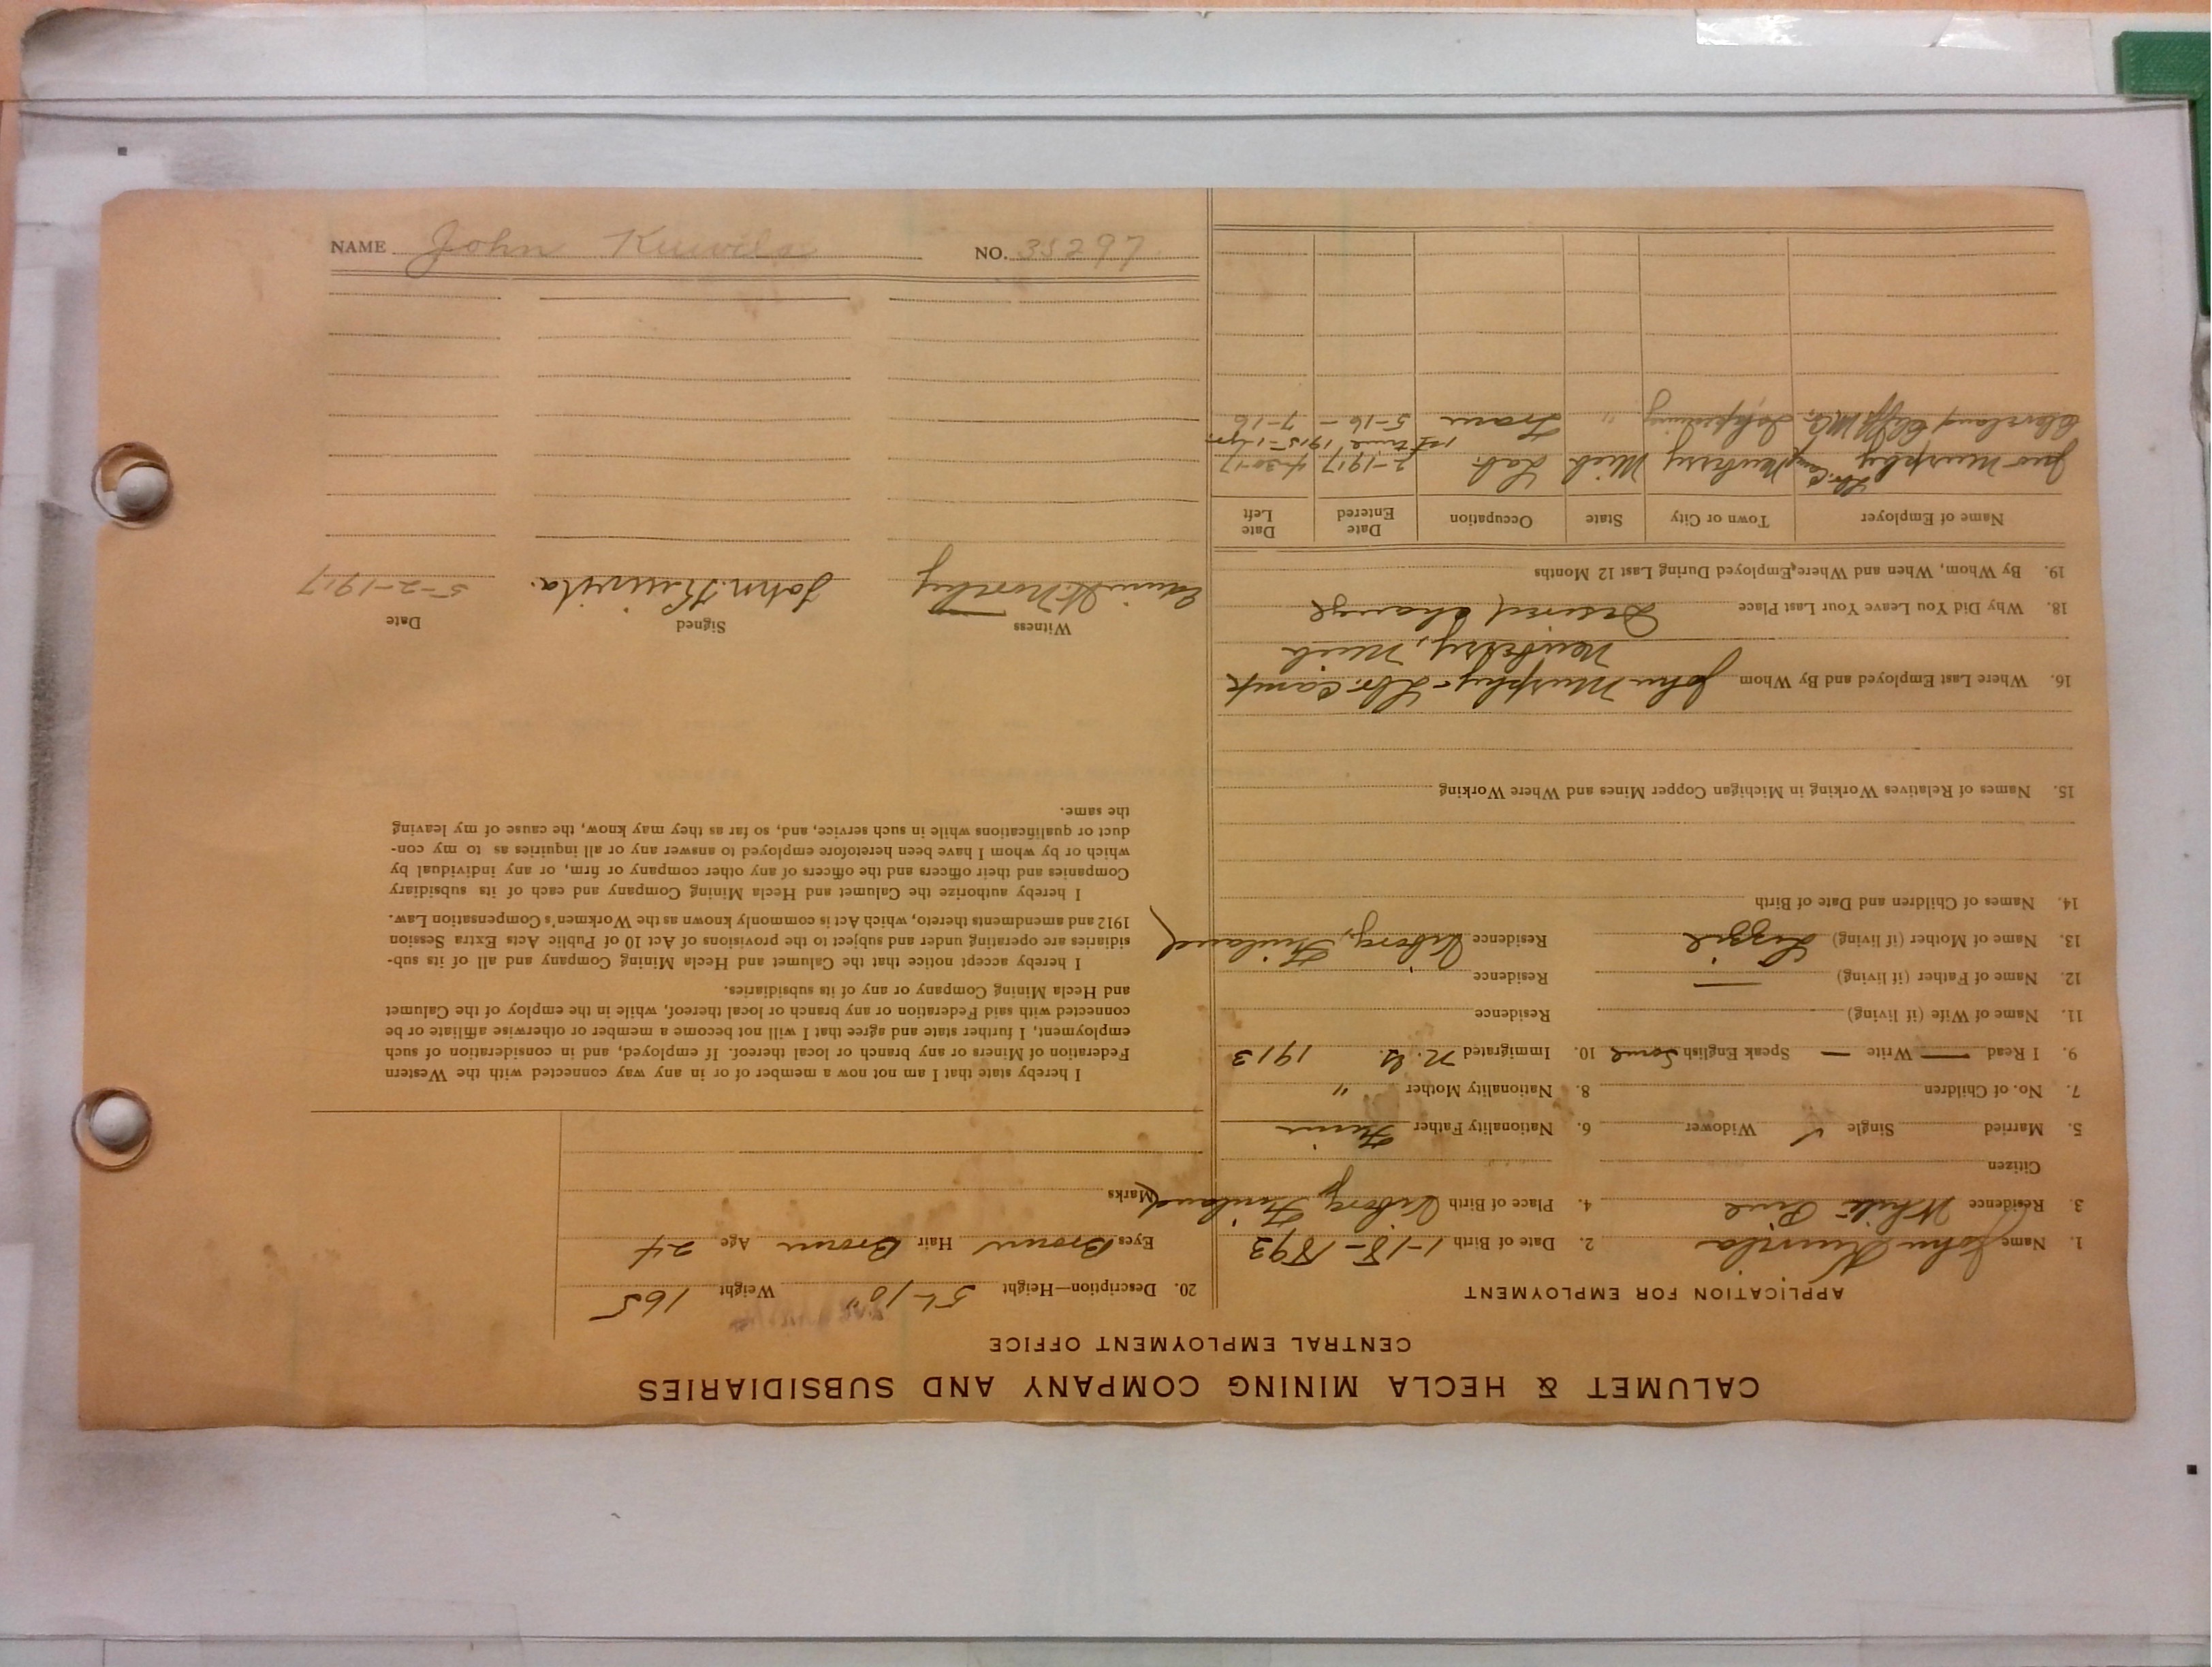 CALUMET & HECLA MINING COMPANY AND SUBSIDIARIES
CENTRAL EMPLOYMENT OFFICE
APPLICATION FOR EMPLOYMENT
1. Name John Kuivila 2. Date of Birth 1-18-1893
3. Residence White Pine 4. Place of Birth Viborg, Finland
Citizen
5. Married Single ✓ Widower 6. Nationality Father Finn
7. No. of Children 8. Nationality Mother "
9. I Read — Write — Speak English Some 10. Immigrated N.Y. 1913
11. Name of Wife (if living) Residence
12. Name of Father (if living) — Residence
13. Name of Mother (if living) Lizzie Residence Viborg, Finland
14. Names of Children and Date of Birth
15. Names of Relatives Working in Michigan Copper Mines and Where Working
16. Where Last Employed and By Whom John Murphy - Lbr. Camp
Newberry, Mich
18. Why Did You Leave Your Last Place Desired Change
19. By Whom, When and Where Employed During Last 12 Months
Name of Employer Town or City State Occupation Date Entered Date Left
Jno Murphy Lbr. Camp Newberry Mich Lab. 2-1917 4-30-17
1st time 1915-1 yr.
Cleveland Cliff M Co. Ishpeming " Tram 5-16 - 7-16
20. Description—Height 5'-10" Weight 165
Eyes Brown Hair Brown Age 24
Marks
I hereby state that I am not now a member of or in any way connected with the Western
Federation of Miners or any branch or local thereof. If employed, and in consideration of such
employment, I further state and agree that I will not become a member or otherwise affiliate or be
connected with said Federation or any branch or local thereof, while in the employ of the Calumet
and Hecla Mining Company or any of its subsidiaries.
I hereby accept notice that the Calumet and Hecla Mining Company and all of its sub-
sidiaries are operating under and subject to the provisions of Act 10 of Public Acts Extra Session
1912 and amendments thereto, which Act is commonly known as the Workmen's Compensation Law.
I hereby authorize the Calumet and Hecla Mining Company and each of its subsidiary
Companies and their officers and the officers of any other company or firm, or any individual by
which or by whom I have been heretofore employed to answer any or all inquiries as to my con-
duct or qualifications while in such service, and, so far as they may know, the cause of my leaving
the same.
Witness Signed Date
John Kuivila. 5-2-1917
NAME John Kuivila NO. 35297